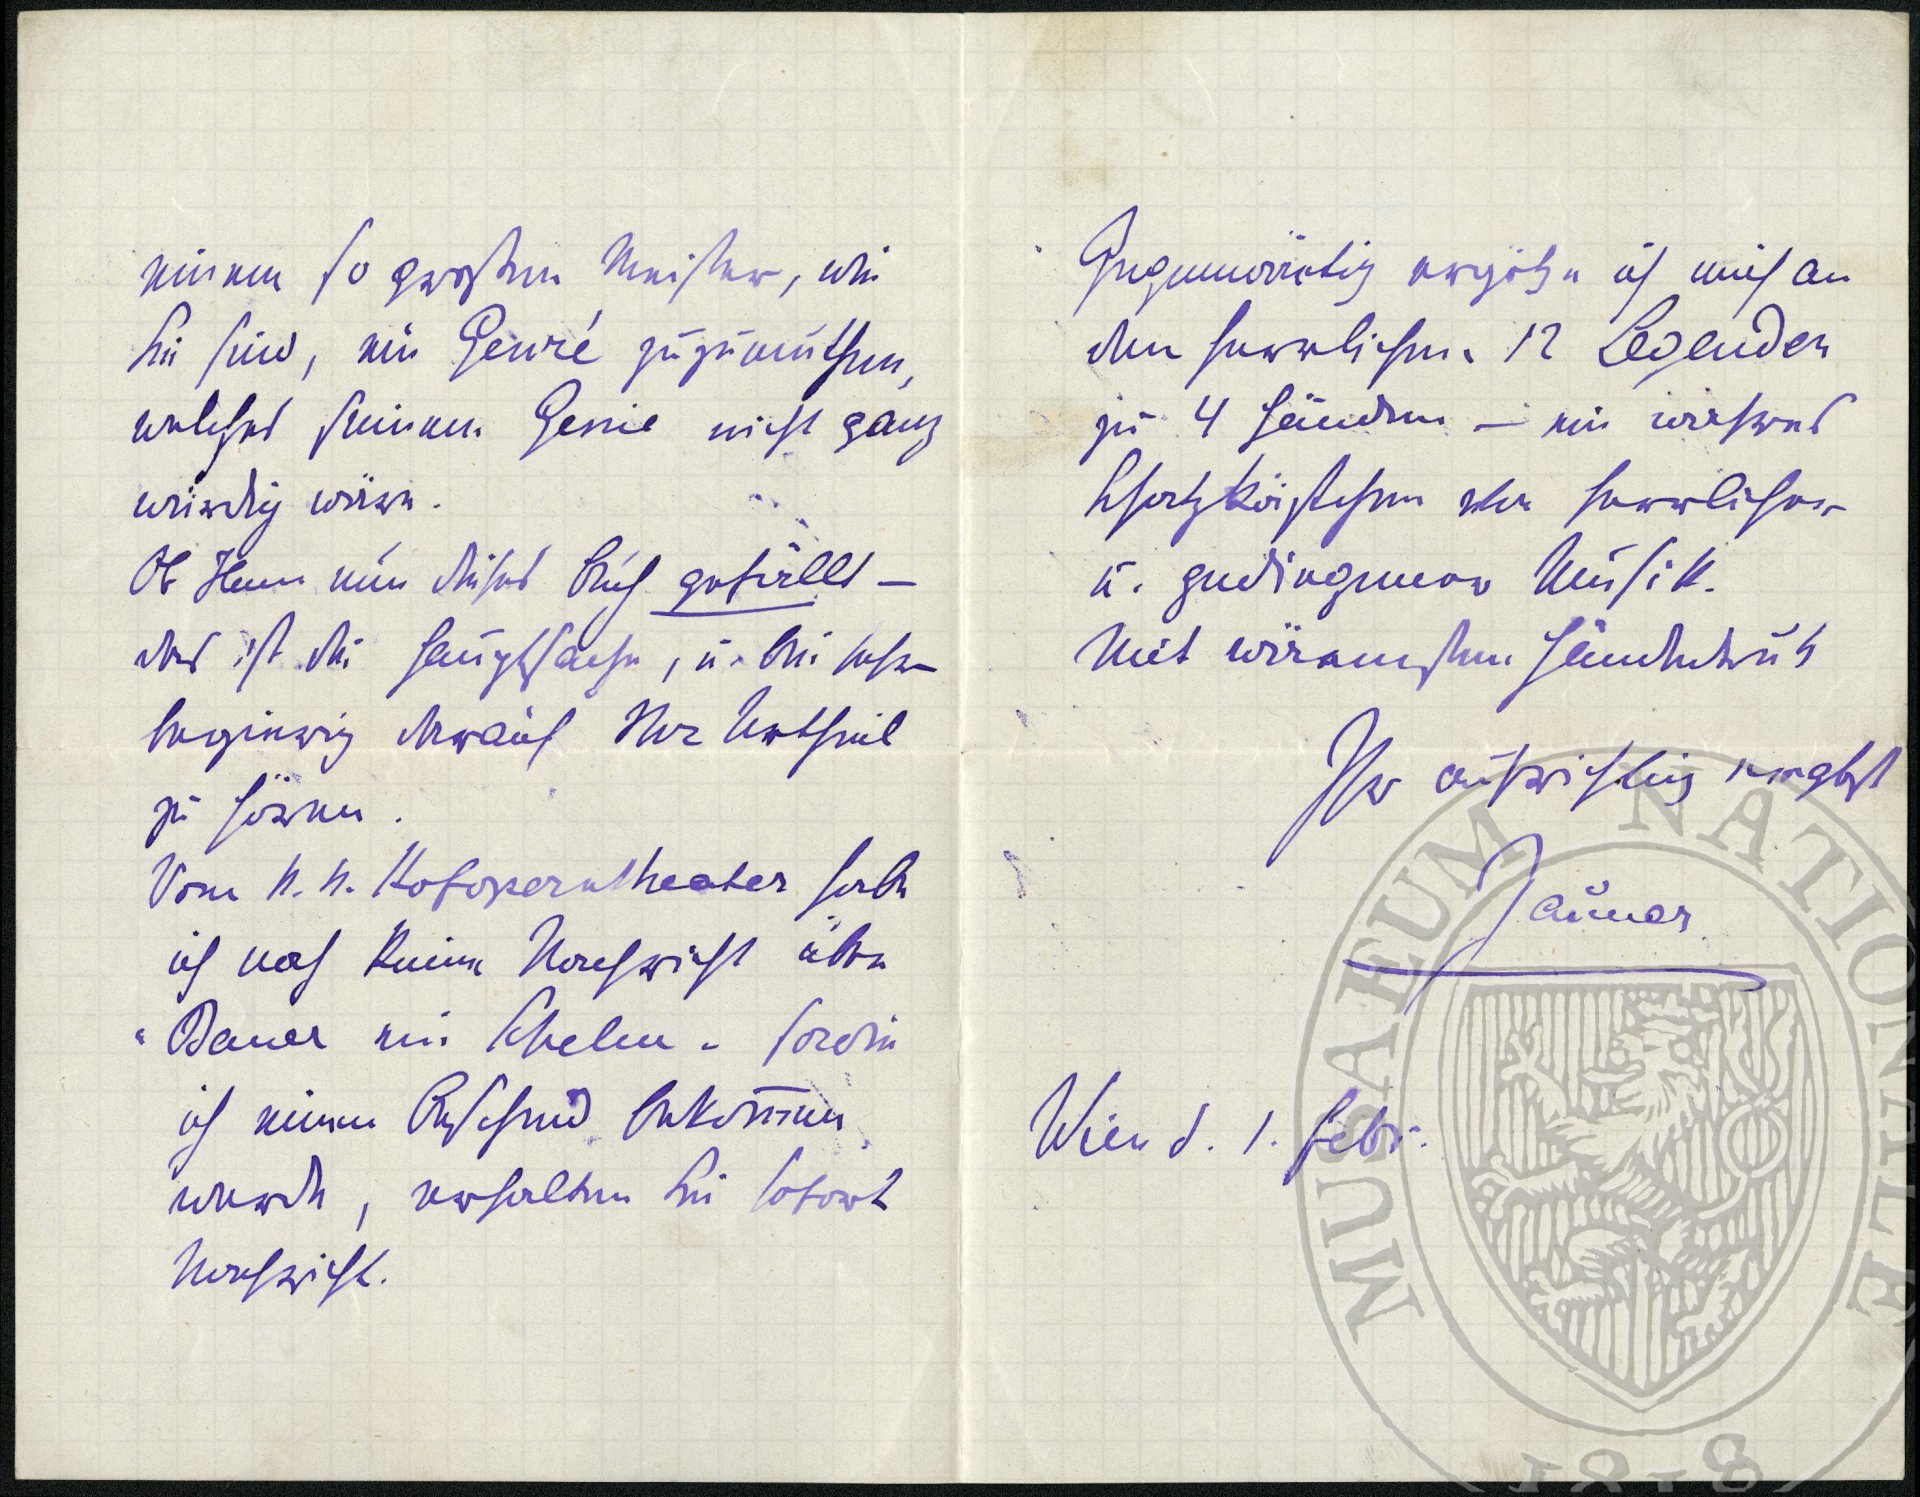 einem so großen Meister, wie
Sie sind, ein Genré zuzumuthen,
welches seinem Genie nicht ganz
würdig wäre.
Ob Ihnen nun dieses Buch gefällt –
das ist die Hauptsache, u. bin sehr
begierig darauf Ihr Urtheil
zu hören.
Vom k. k. Hofoperntheater habe
ich noch keine Nachricht über
"Bauer ein Schelm – sowie
ich einen Bescheid bekommen
werde, erhalten Sie sofort
Nachricht.
Gegenwärtig ergötze ich mich an
den herrlichen 12 Legenden
zu 4 Händen – ein wahres
Schatzkästchen der herrlichen
u. gediegener Musik.
Mit wärmstem Händedruck
Ihr aufrichtig ergebst
Jauner
Wien d. 1. Febr.
MUSAEUM NATIONALE
1818